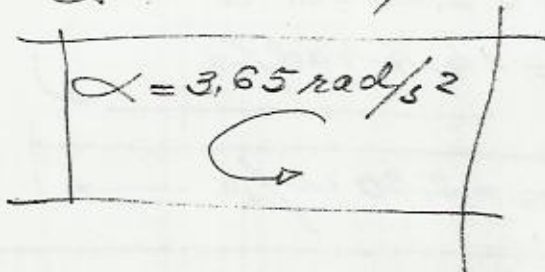 α = 3,65 rad/s2